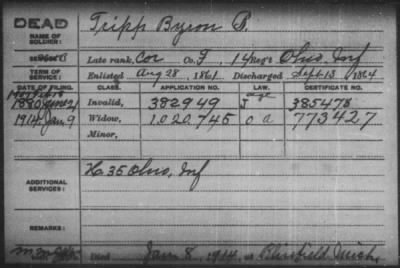 DEAD
NAME OF SOLDIER:
Tripp Byron B.
SERVICE:
Late rank, Cor Co. I, 14 Reg't Ohio Inf
TERM OF SERVICE:
Enlisted Aug 28, 1861 Discharged Sept 13 1864
DATE OF FILING. CLASS. APPLICATION NO. LAW. CERTIFICATE NO.
1880 June 21 Invalid, 382949 J age 385478
1914 Jan 9 Widow, 1,020,745 O a 773427
Minor,
ADDITIONAL SERVICES:
H 35 Ohio, Inf
REMARKS:
Died Jan 8, 1914, at Blissfield Mich,